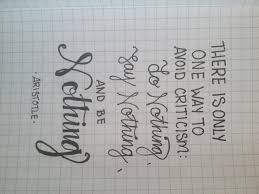 THERE IS ONLY
ONE WAY TO
AVOID CRITICISM:
Do Nothing,
Say Nothing,
AND BE
Nothing
- ARISTOTLE -